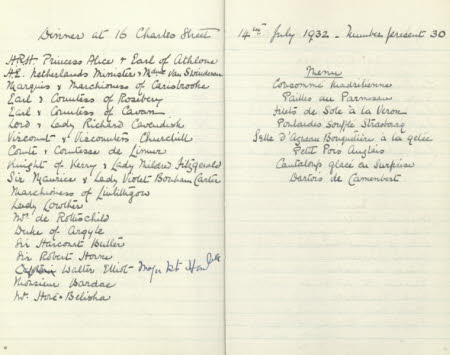 Dinner at 16 Charles Street
H.R.H. Princess Alice & Earl of Athlone
H.E. Netherlands Minister & Mdme Van Swinderen
Marquis & Marchioness of Carisbrooke
Earl & Countess of Rosebery
Earl & Countess of Cavan
Lord & Lady Richard Cavendish
Viscount & Viscountess Churchill
Comte & Comtesse de Limur
Knight of Kerry & Lady Mildred Fitzgerald
Sir Maurice & Lady Violet Bonham Carter
Marchioness of Linlithgow
Lady Lowther
Mr de Rothschild
Duke of Argyle
Sir Harcourt Butler
Sir Robert Horne
Captain Walter Elliot - Major Rt Hon
Monsieur Bardac
Mr Hore-Belisha
14th July 1932 - Number present 30
Menu
Consommé Madrilienne
Pailles au Parmesan
Filets de Sole à la Veron
Poulardes Souffle Strasbourg
Selle d'Agneau Bouquetière à la gelée
Petit Pois Anglais
Cantaloup glacé en Surprise
Bartois de Camembert